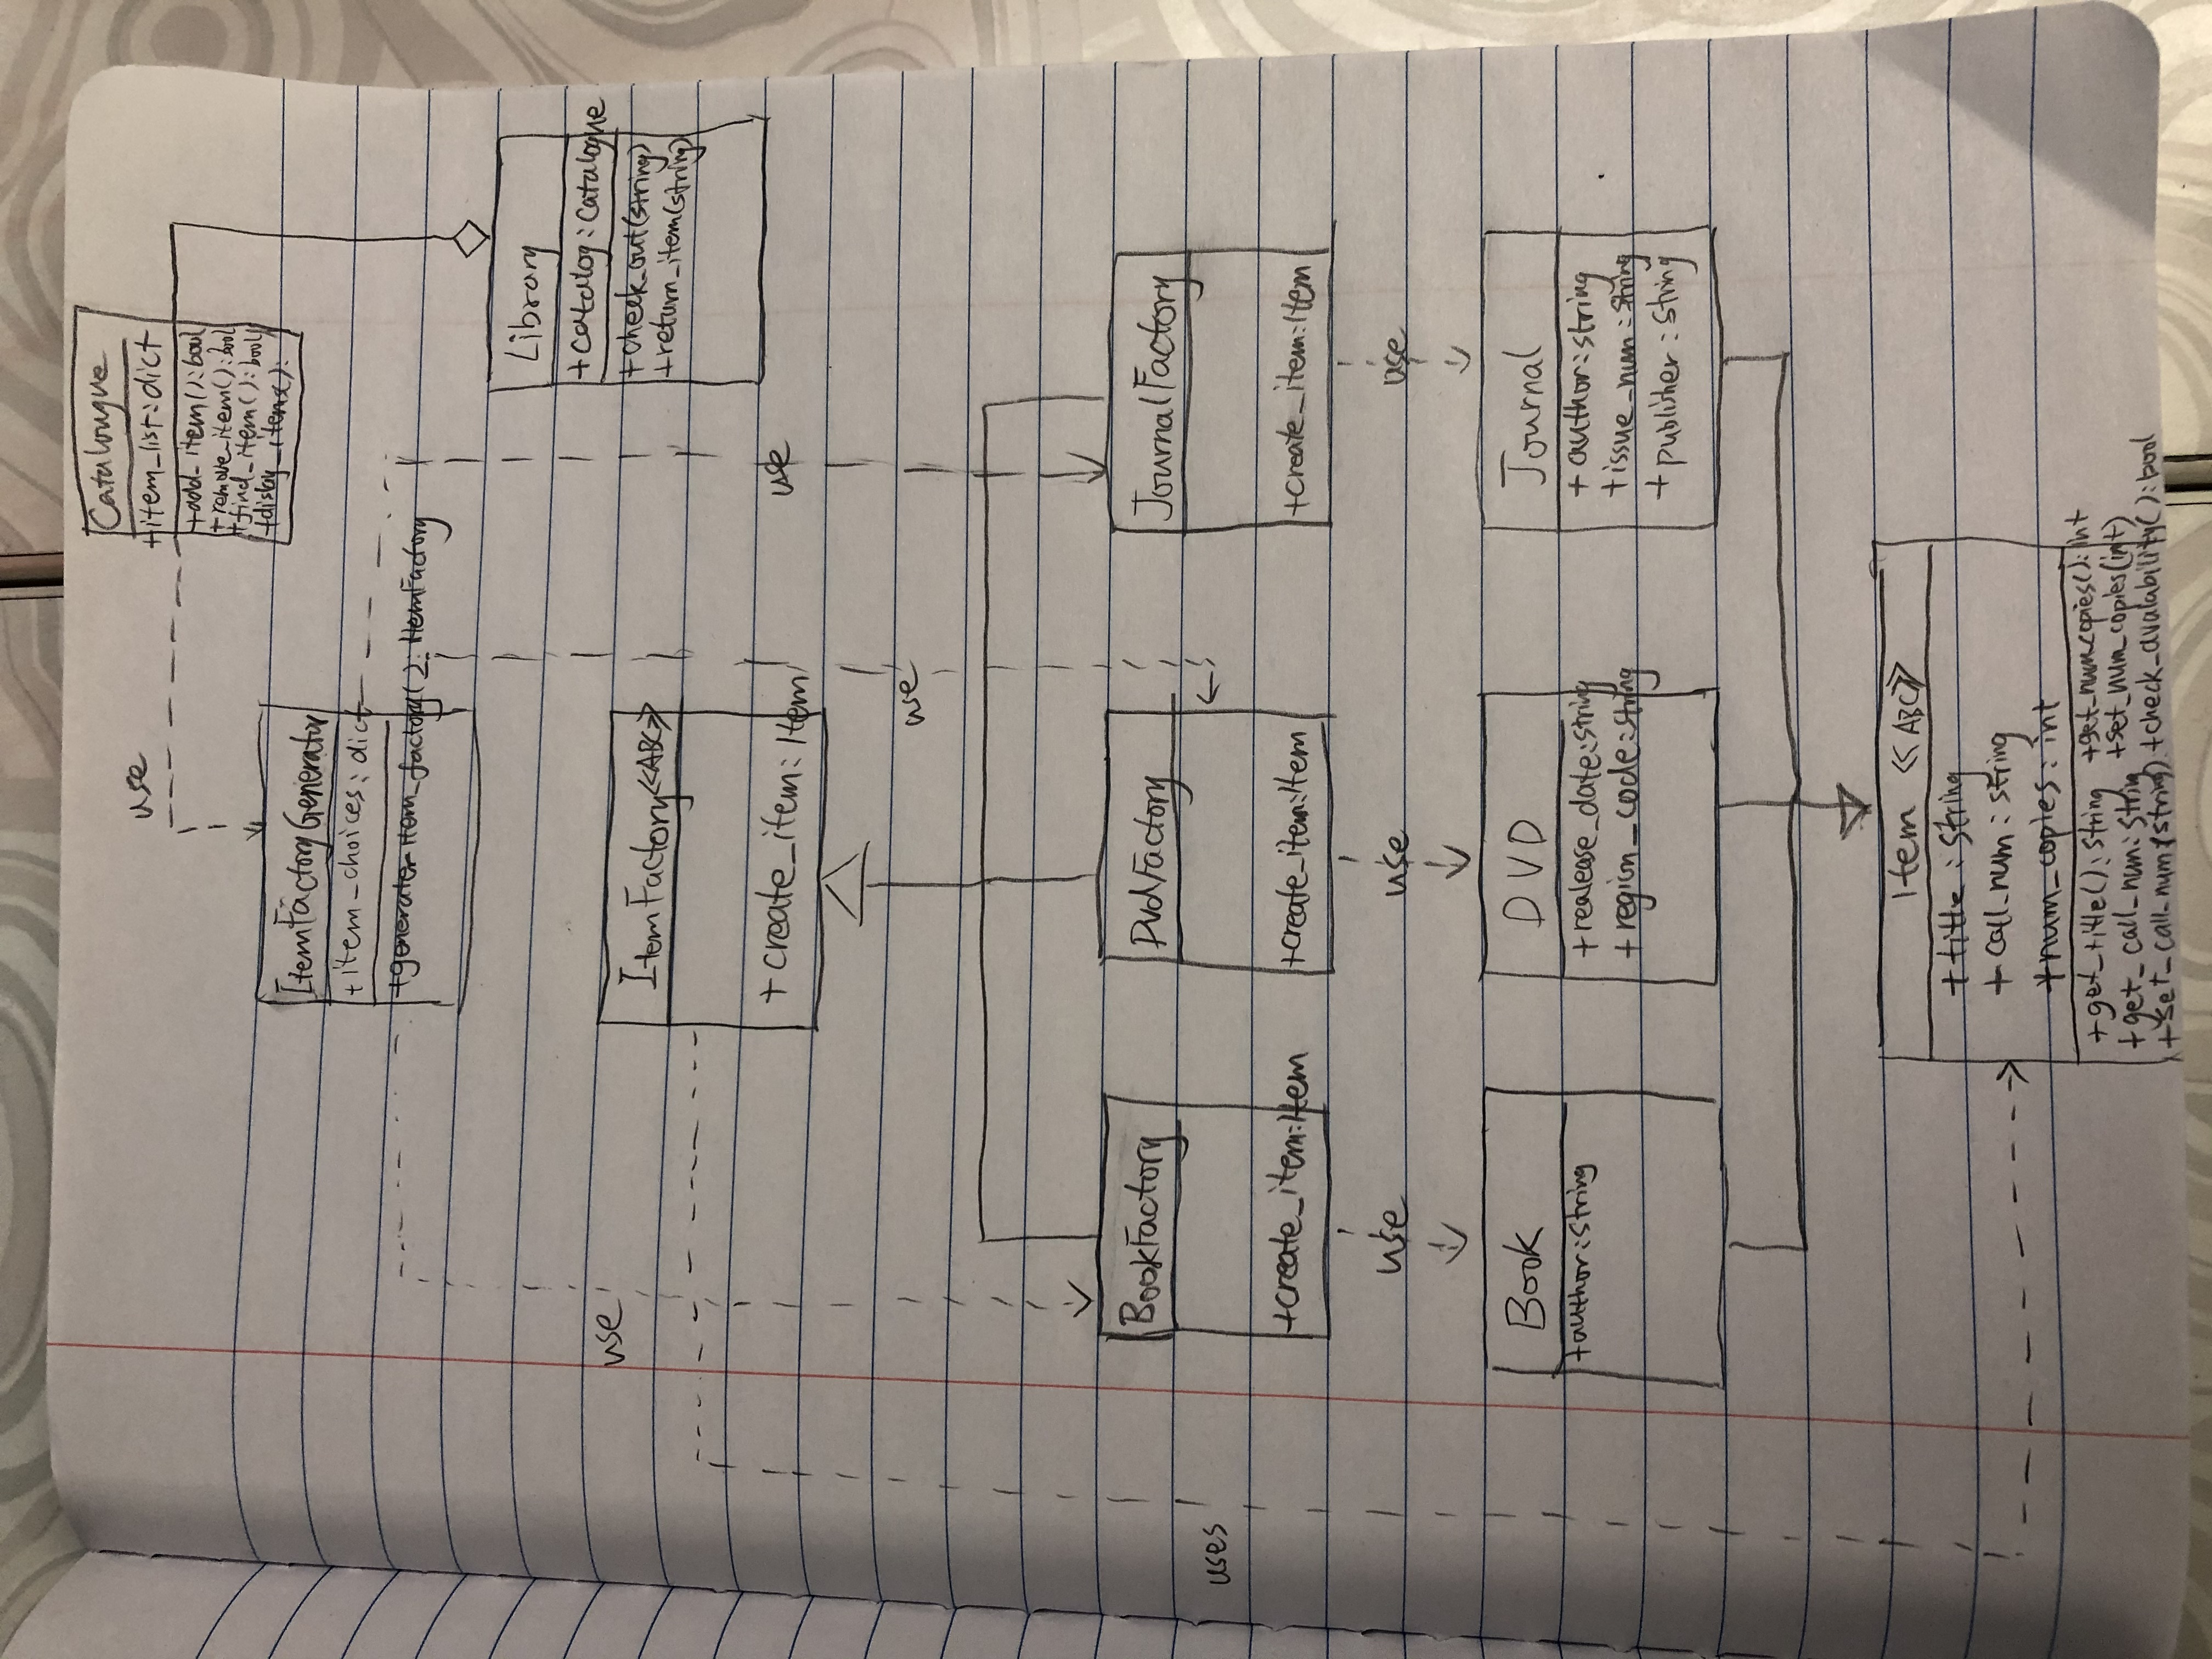 Catalougue
+item_list: dict
+add_item(): bool
+remove_item(): bool
+find_item(): bool
+display_items():
use
ItemFactoryGenerator
+item_choices: dict
+generater item_factory(): ItemFactory
Library
+catalog: Catalogue
+check_out(string)
+return_item(string)
use
ItemFactory <<ABC>>
+ create_item: Item
use
use
BookFactory
+create_item: Item
DvdFactory
+create_item: Item
JournalFactory
+create_item: Item
uses
use
use
use
Book
+author: string
DVD
+realease_date: string
+ region_code: string
Journal
+ author: string
+issue_num: string
+ publisher: string
Item <<ABC>>
+ title : string
+ call_num : string
+num_copies: int
+get_title(): string +get_num_copies(): int
+get_call_num: string +set_num_copies(int)
+set_call_num(string) +check_avalability(): bool